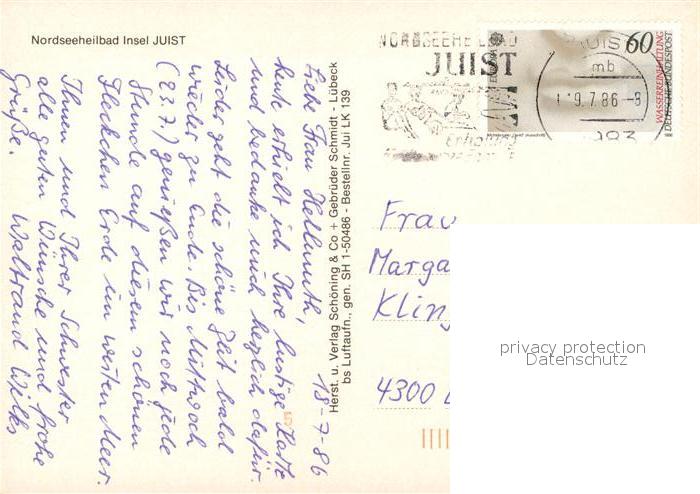 Nordseeheilbad Insel JUIST
18-7-86
Liebe Frau Hellmuth,
heute erhielt ich Ihre lustige Karte
und bedanke mich herzlich dafür.
Leider geht die schöne Zeit bald
wieder zu Ende. Bis Mittwoch
(23.7.) genießen wir noch jede
Stunde auf diesem schönen
Fleckchen Erde im weiten Meer.
Ihnen und Ihrer Schwester
alle guten Wünsche und frohe
Grüße. Waltraud Wilks
Herst. u. Verlag Schöning & Co + Gebrüder Schmidt - Lübeck
bs Luftaufn., gen. SH 1-50486 - Bestellnr. Jui LK 139
NORDSEEHEILBAD
JUIST
Erholung
60
WASSERREINHALTUNG
DEUTSCHE BUNDESPOST
JUIST
mb
19.7.86-8
2983
Frau
Marga
Kling
4300
privacy protection
Datenschutz